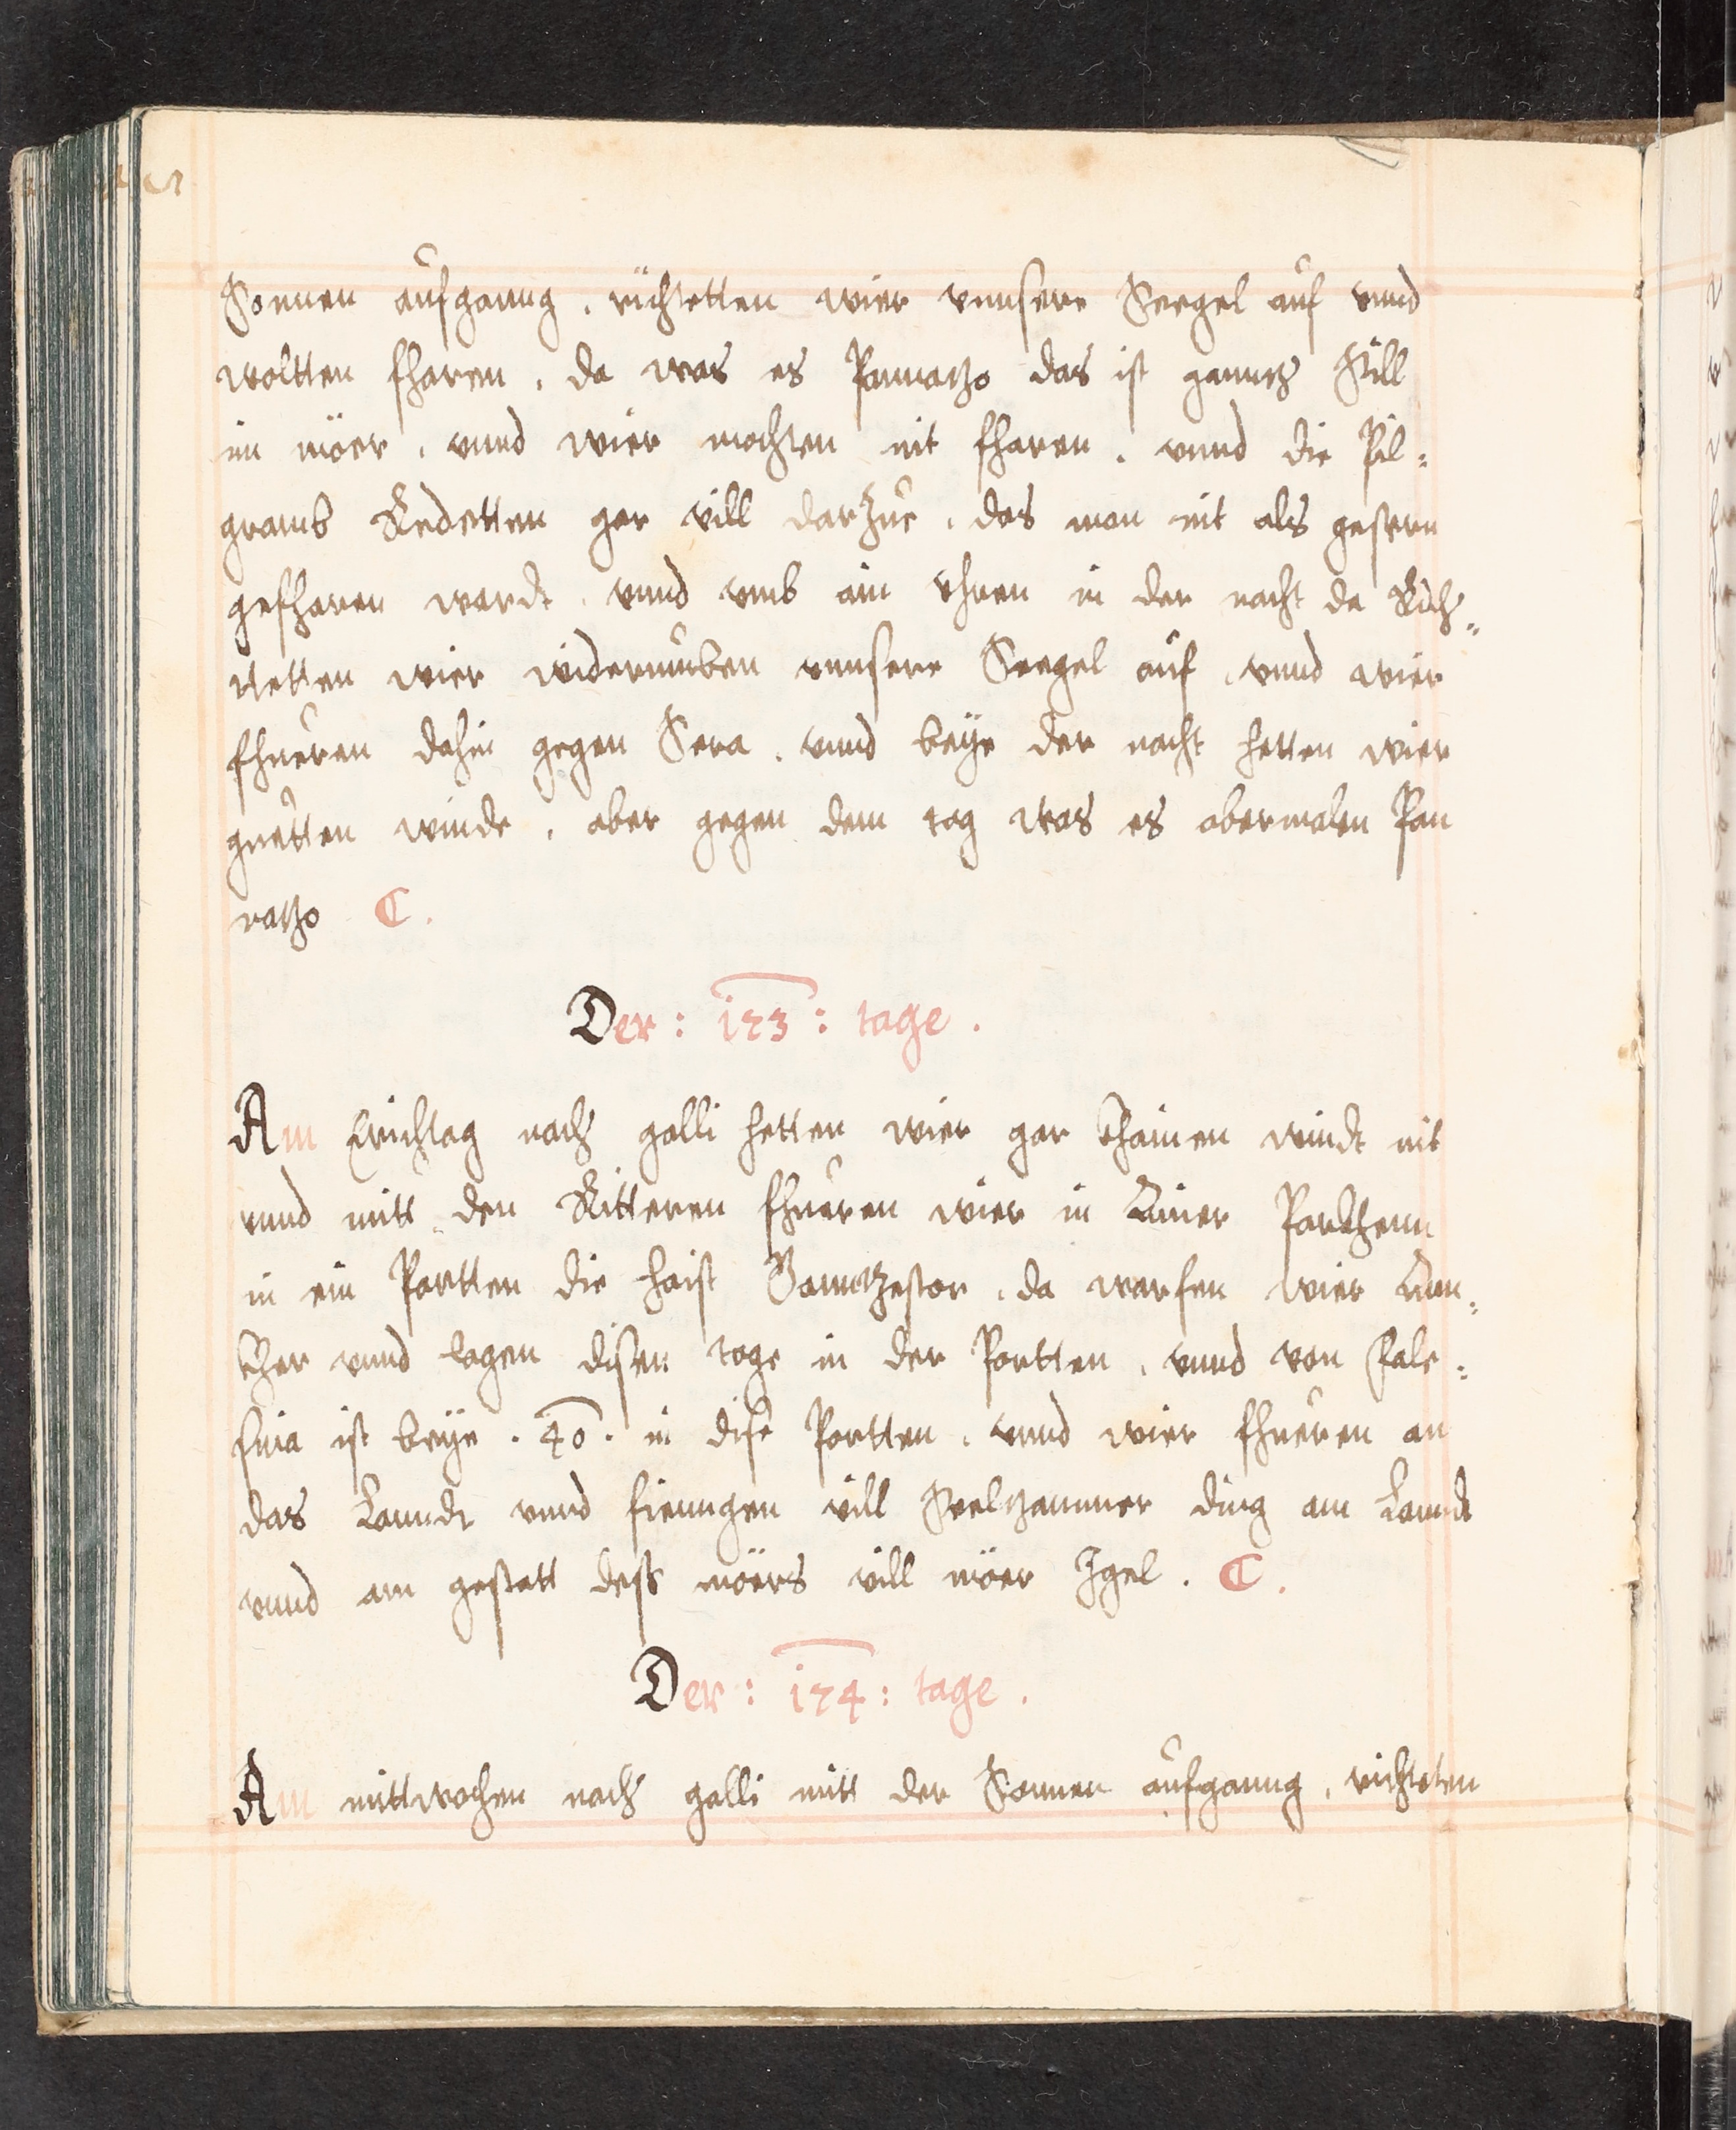 Sonnen aufganng. richtetten wier vnnsere Seegel auf vnnd
woltten fharen. da was es Pannatzo das ist ganntz Still
im möer. vnnd wier mochten nit fharen. vnnd die Pil=
gramb Redetten gar vill darzue. das man nit als gestern
gefharen wardt. vnnd vmb ain Vhren in der nacht da Rich=
tetten wier widerumben vnnsere Seegel auf. vnnd wier
fhueren dahin gegen Sera. vnnd beÿe der nacht hetten wier
guetten winde. aber gegen dem tag was es abermalen Pan
natzo C.
Der: 123: tage.
Am Erichtag nach galli hetten wier gar khainen windt nit
vnnd mitt den Ritteren fhueren wier in Ainer Parkhenn
in ein Portten die haist . da warfen wier Ann=
kher vnnd lagen disen tage in der Portten. vnnd von Cale=
finia ist beÿe. 40. in dise Portten. vnnd wier fhueren an
das Lanndt vnnd fienngen vill Seeltzammer ding am Lanndt
vnnd am gestatt dess möers vill möer Igel. C.
Der: 124: tage.
Am mittwochen nach galli mitt der Sonnen aufganng. richteten